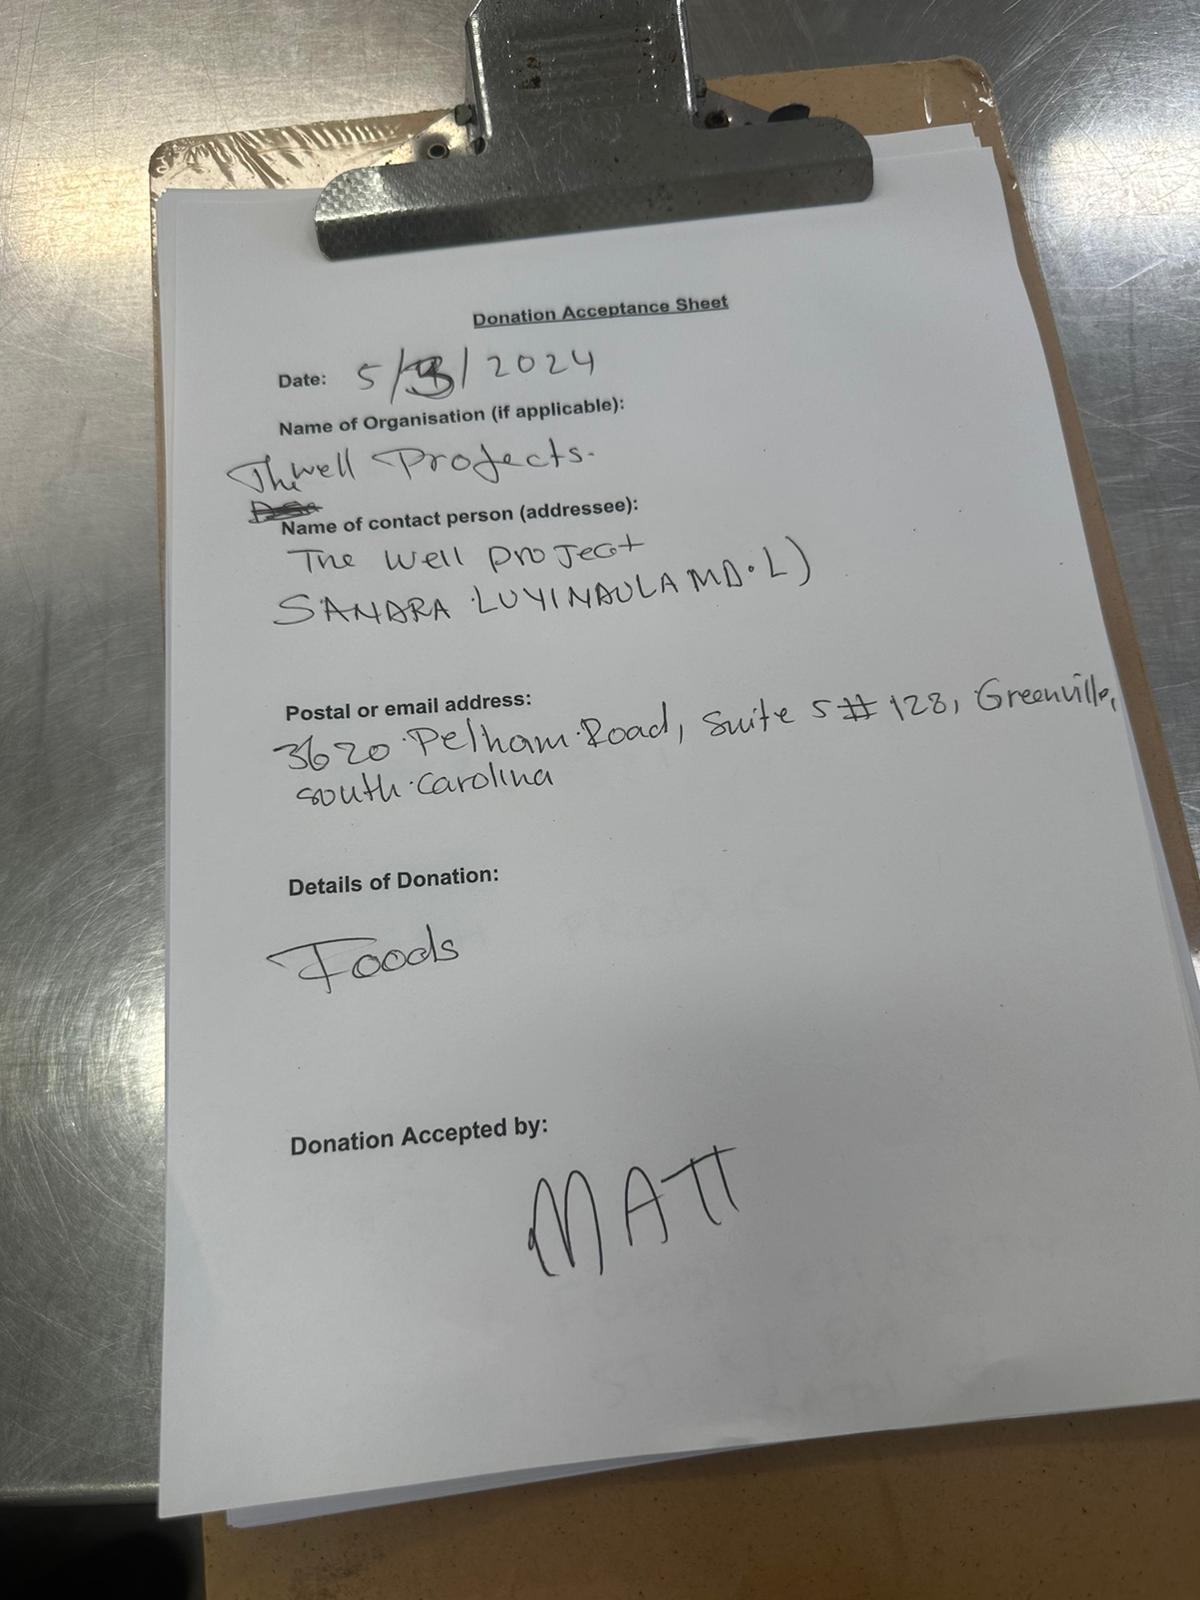 Donation Acceptance Sheet
Date: 5/3/2024
Name of Organisation (if applicable):
The well Projects.
Name of contact person (addressee):
The well project
SANDRA LUYINDULA MD.L)
Postal or email address:
3620 Pelham Road, Suite 5 # 128, Greenville,
south carolina
Details of Donation:
Foods
Donation Accepted by:
MATT